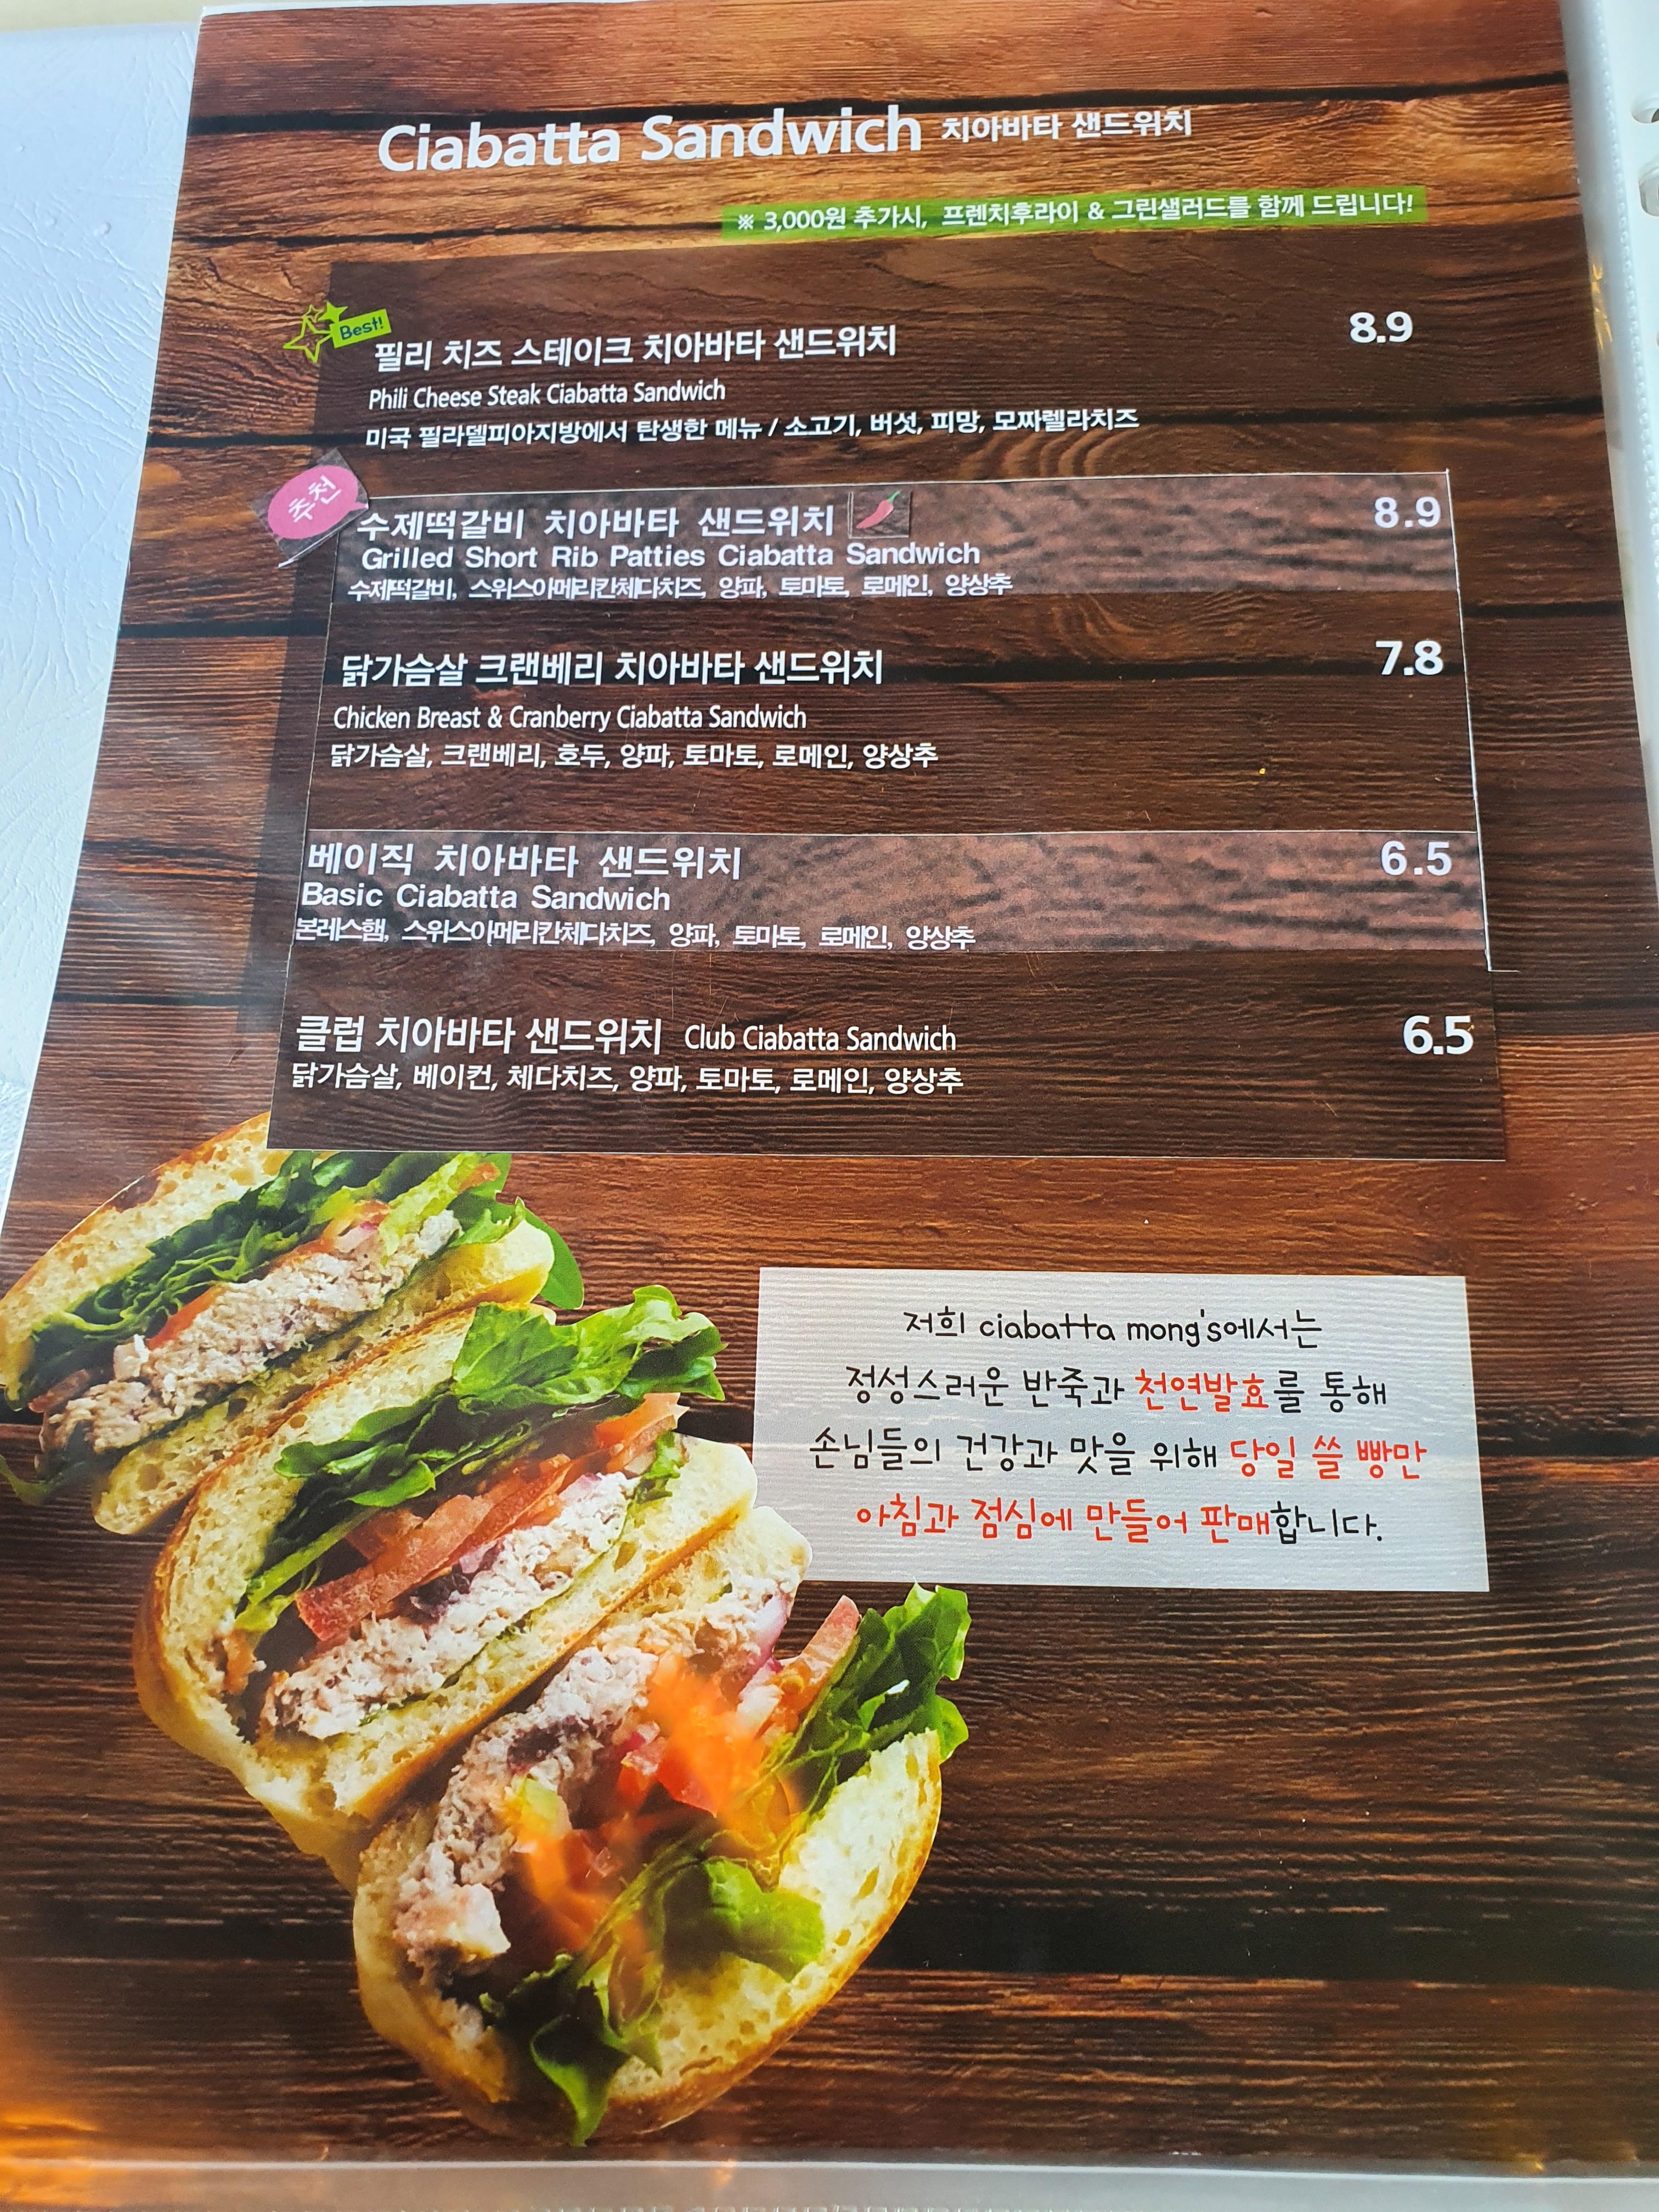 Ciabatta Sandwich 치아바타 샌드위치
※ 3,000원 추가시, 프렌치후라이 & 그린샐러드를 함께 드립니다!
Best!
필리 치즈 스테이크 치아바타 샌드위치 8.9
Phili Cheese Steak Ciabatta Sandwich
미국 필라델피아지방에서 탄생한 메뉴 / 소고기, 버섯, 피망, 모짜렐라치즈
추천
수제떡갈비 치아바타 샌드위치 8.9
Grilled Short Rib Patties Ciabatta Sandwich
수제떡갈비, 스위스아메리칸체다치즈, 양파, 토마토, 로메인, 양상추
닭가슴살 크랜베리 치아바타 샌드위치 7.8
Chicken Breast & Cranberry Ciabatta Sandwich
닭가슴살, 크랜베리, 호두, 양파, 토마토, 로메인, 양상추
베이직 치아바타 샌드위치 6.5
Basic Ciabatta Sandwich
본레스햄, 스위스아메리칸체다치즈, 양파, 토마토, 로메인, 양상추
클럽 치아바타 샌드위치 Club Ciabatta Sandwich 6.5
닭가슴살, 베이컨, 체다치즈, 양파, 토마토, 로메인, 양상추
저희 ciabatta mong's에서는
정성스러운 반죽과 천연발효를 통해
손님들의 건강과 맛을 위해 당일 쓸 빵만
아침과 점심에 만들어 판매합니다.